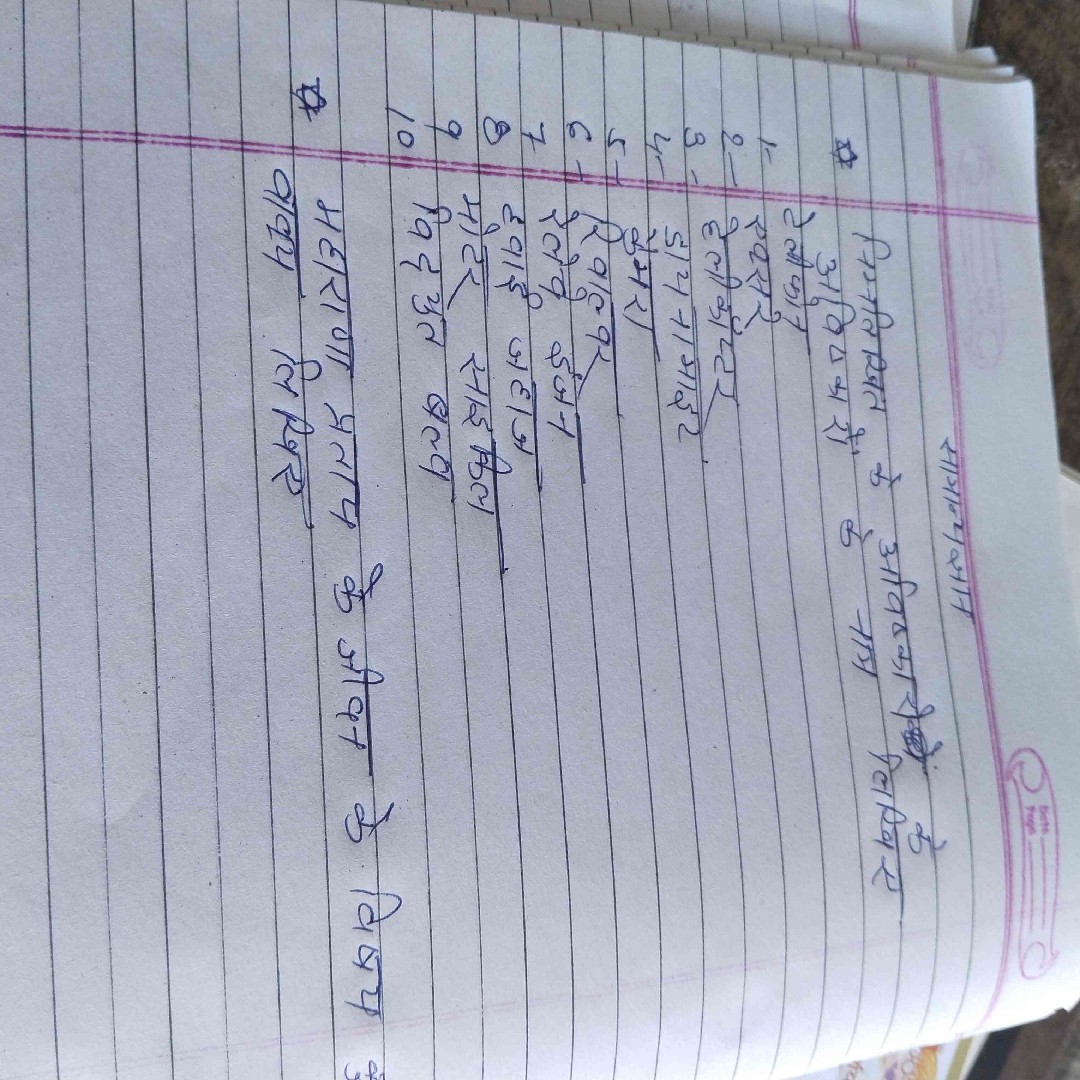 सामान्य ज्ञान
निम्नलिखित के आविष्कारों के
आविष्कारों के नाम लिखिए
टेलीफोन
1- स्कूटर
2- हेलीकॉप्टर
3- डायनामाइट
4- कैमरा
5- रिवाल्वर
6- रेलवे इंजन
7 हवाई जहाज
8 मोटर साइकिल
9 विद्युत बल्ब
10
महाराणा प्रताप के जीवन के विषय में
वाक्य लिखिए
Date
Page